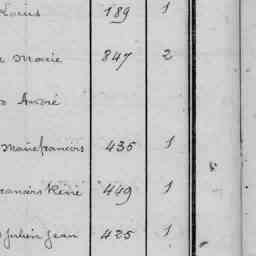 Louis 189 1
Marie 847 2
André
Marie françois 435 1
françois Réné 449 1
Julien Jean 425 1